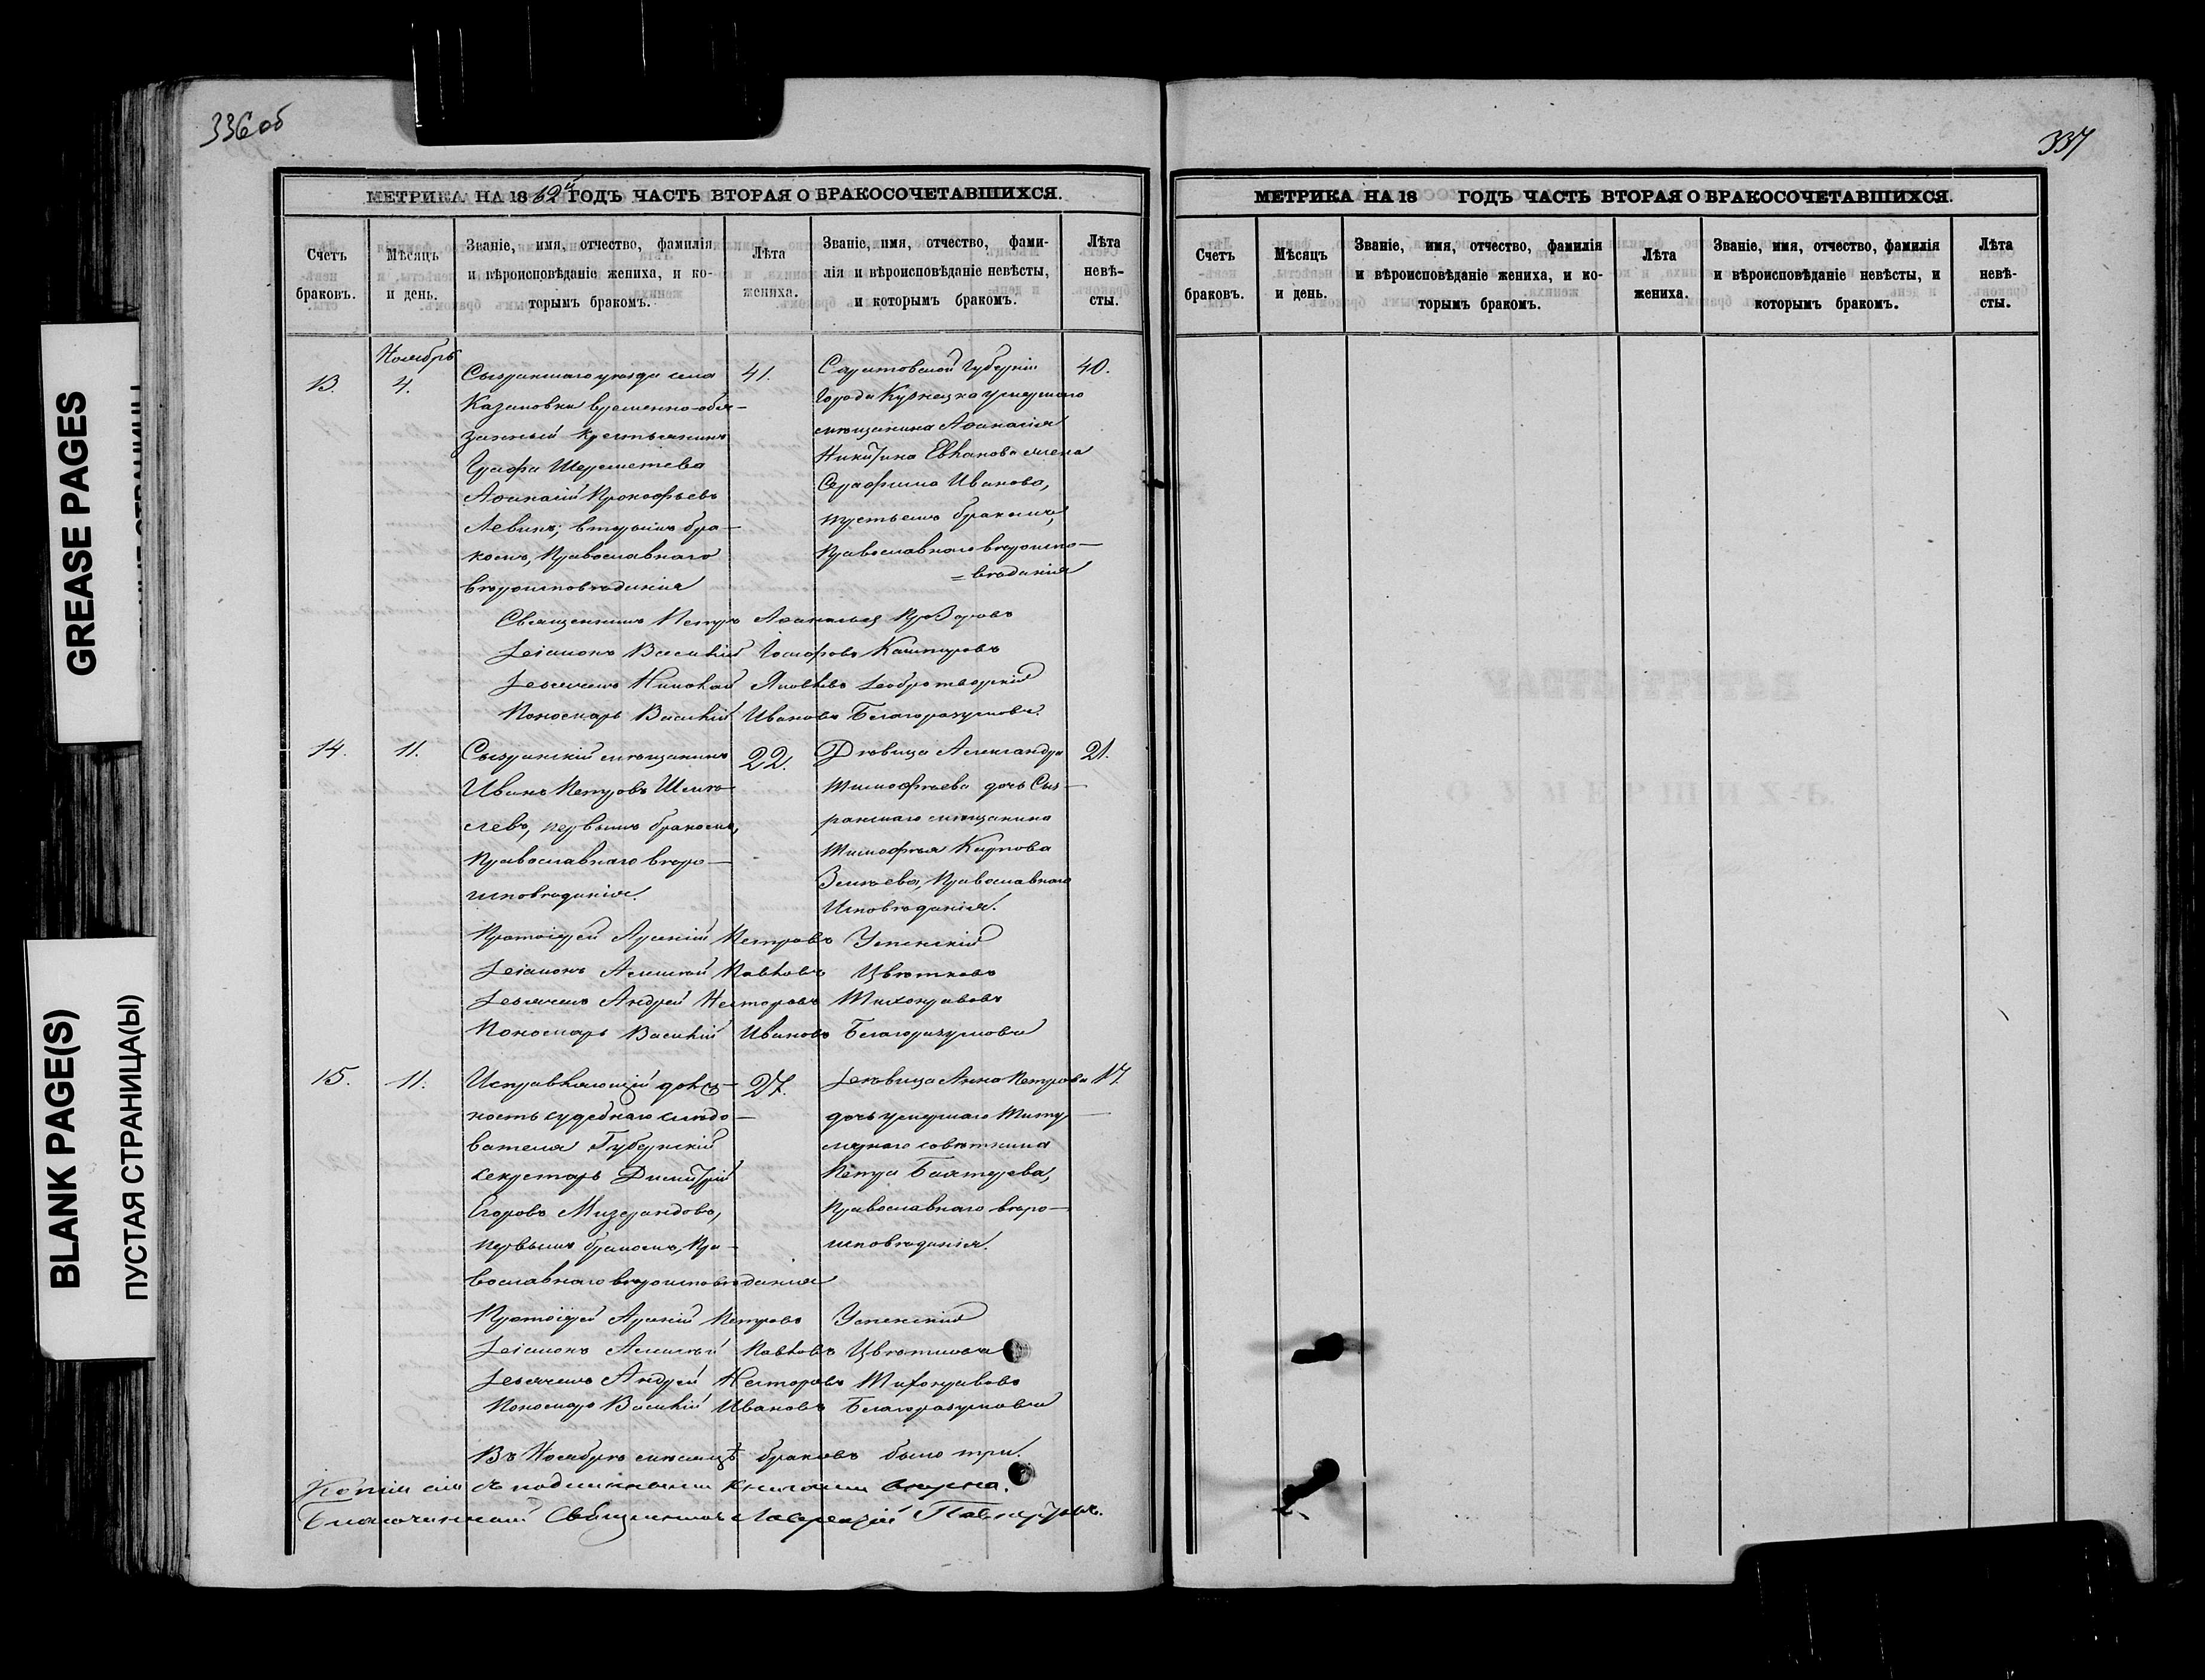 336об
МЕТРИКА НА 1862й ГОДЪ ЧАСТЬ ВТОРАЯ О БРАКОСОЧЕТАВШИХСЯ.
Счетъ браковъ.
Мѣсяцъ и день.
Званіе, имя, отчество, фамилія
и вѣроисповѣданіе жениха, и ко-
торымъ бракомъ.
Лѣта жениха.
Званіе, имя, отчество, фами-
лія и вѣроисповѣданіе невѣсты,
и которымъ бракомъ.
Лѣта невѣ-
сты.
Ноябрь
13.
4.
Сызранскаго уѣзда села
Казаковки временно-обя-
занный крестьянинъ
Графа Шереметева
Афанасій Прокофьевъ
Левинъ, вторымъ бра-
комъ, Православнаго
вѣроисповѣданія
41.
Саратовской Губерніи
Города Кузнецка умершаго
мѣщанина Афанасія
Никитина жена
Серафима Иванова,
третьимъ бракомъ,
Православнаго вѣроиспо-
=вѣданія
40.
Священникъ Петръ
Діаконъ Василій
Дьячекъ Николай Яковлевъ Добротворскій
Пономарь Василій Ивановъ Благоразумовъ.
14.
11.
Сызранскій мѣщанинъ
Иванъ Петровъ Шмѣ-
левъ, первымъ бракомъ,
Православнаго вѣро-
исповѣданія.
22.
Дѣвица Александра
Тимофѣева дочь Сыз-
ранскаго мѣщанина
Тимофѣя Карпова
Православнаго
Исповѣданія.
21.
Протоіерей Арсеній Петровъ Успенскій
Діаконъ Алексѣй Павловъ Цвѣтковъ
Дьячекъ Андрей Несторовъ Тихонравовъ
Пономарь Василій Ивановъ Благоразумовъ
15.
11.
Исправляющій долж-
ность судебнаго слѣдо-
вателя Губернскій
секретарь Димитрій
Егоровъ Мизерандовъ,
первымъ бракомъ, Пра-
вославнаго вѣроисповѣданія
27.
Дѣвица Анна Петрова
дочь умершаго Титу-
лярнаго совѣтника
Петра
Православнаго вѣро-
исповѣданія.
17.
Протоіерей Арсеній Петровъ Успенскій
Діаконъ Алексѣй Павловъ Цвѣтковъ
Дьячекъ Андрей Несторовъ Тихонравовъ
Пономарь Василій Ивановъ Благоразумовъ
Въ Ноябрѣ мѣсяцѣ браковъ было три.
Копія сія съ подлинными книгами вѣрна.
Благочинный Священникъ
337
МЕТРИКА НА 18 ГОДЪ ЧАСТЬ ВТОРАЯ О БРАКОСОЧЕТАВШИХСЯ.
Счетъ браковъ.
Мѣсяцъ и день.
Званіе, имя, отчество, фамилія
и вѣроисповѣданіе жениха, и ко-
торымъ бракомъ.
Лѣта жениха.
Званіе, имя, отчество, фамилія
и вѣроисповѣданіе невѣсты, и
которымъ бракомъ.
Лѣта невѣ-
сты.
GREASE PAGES
BLANK PAGE(S)
ПУСТАЯ СТРАНИЦА(Ы)